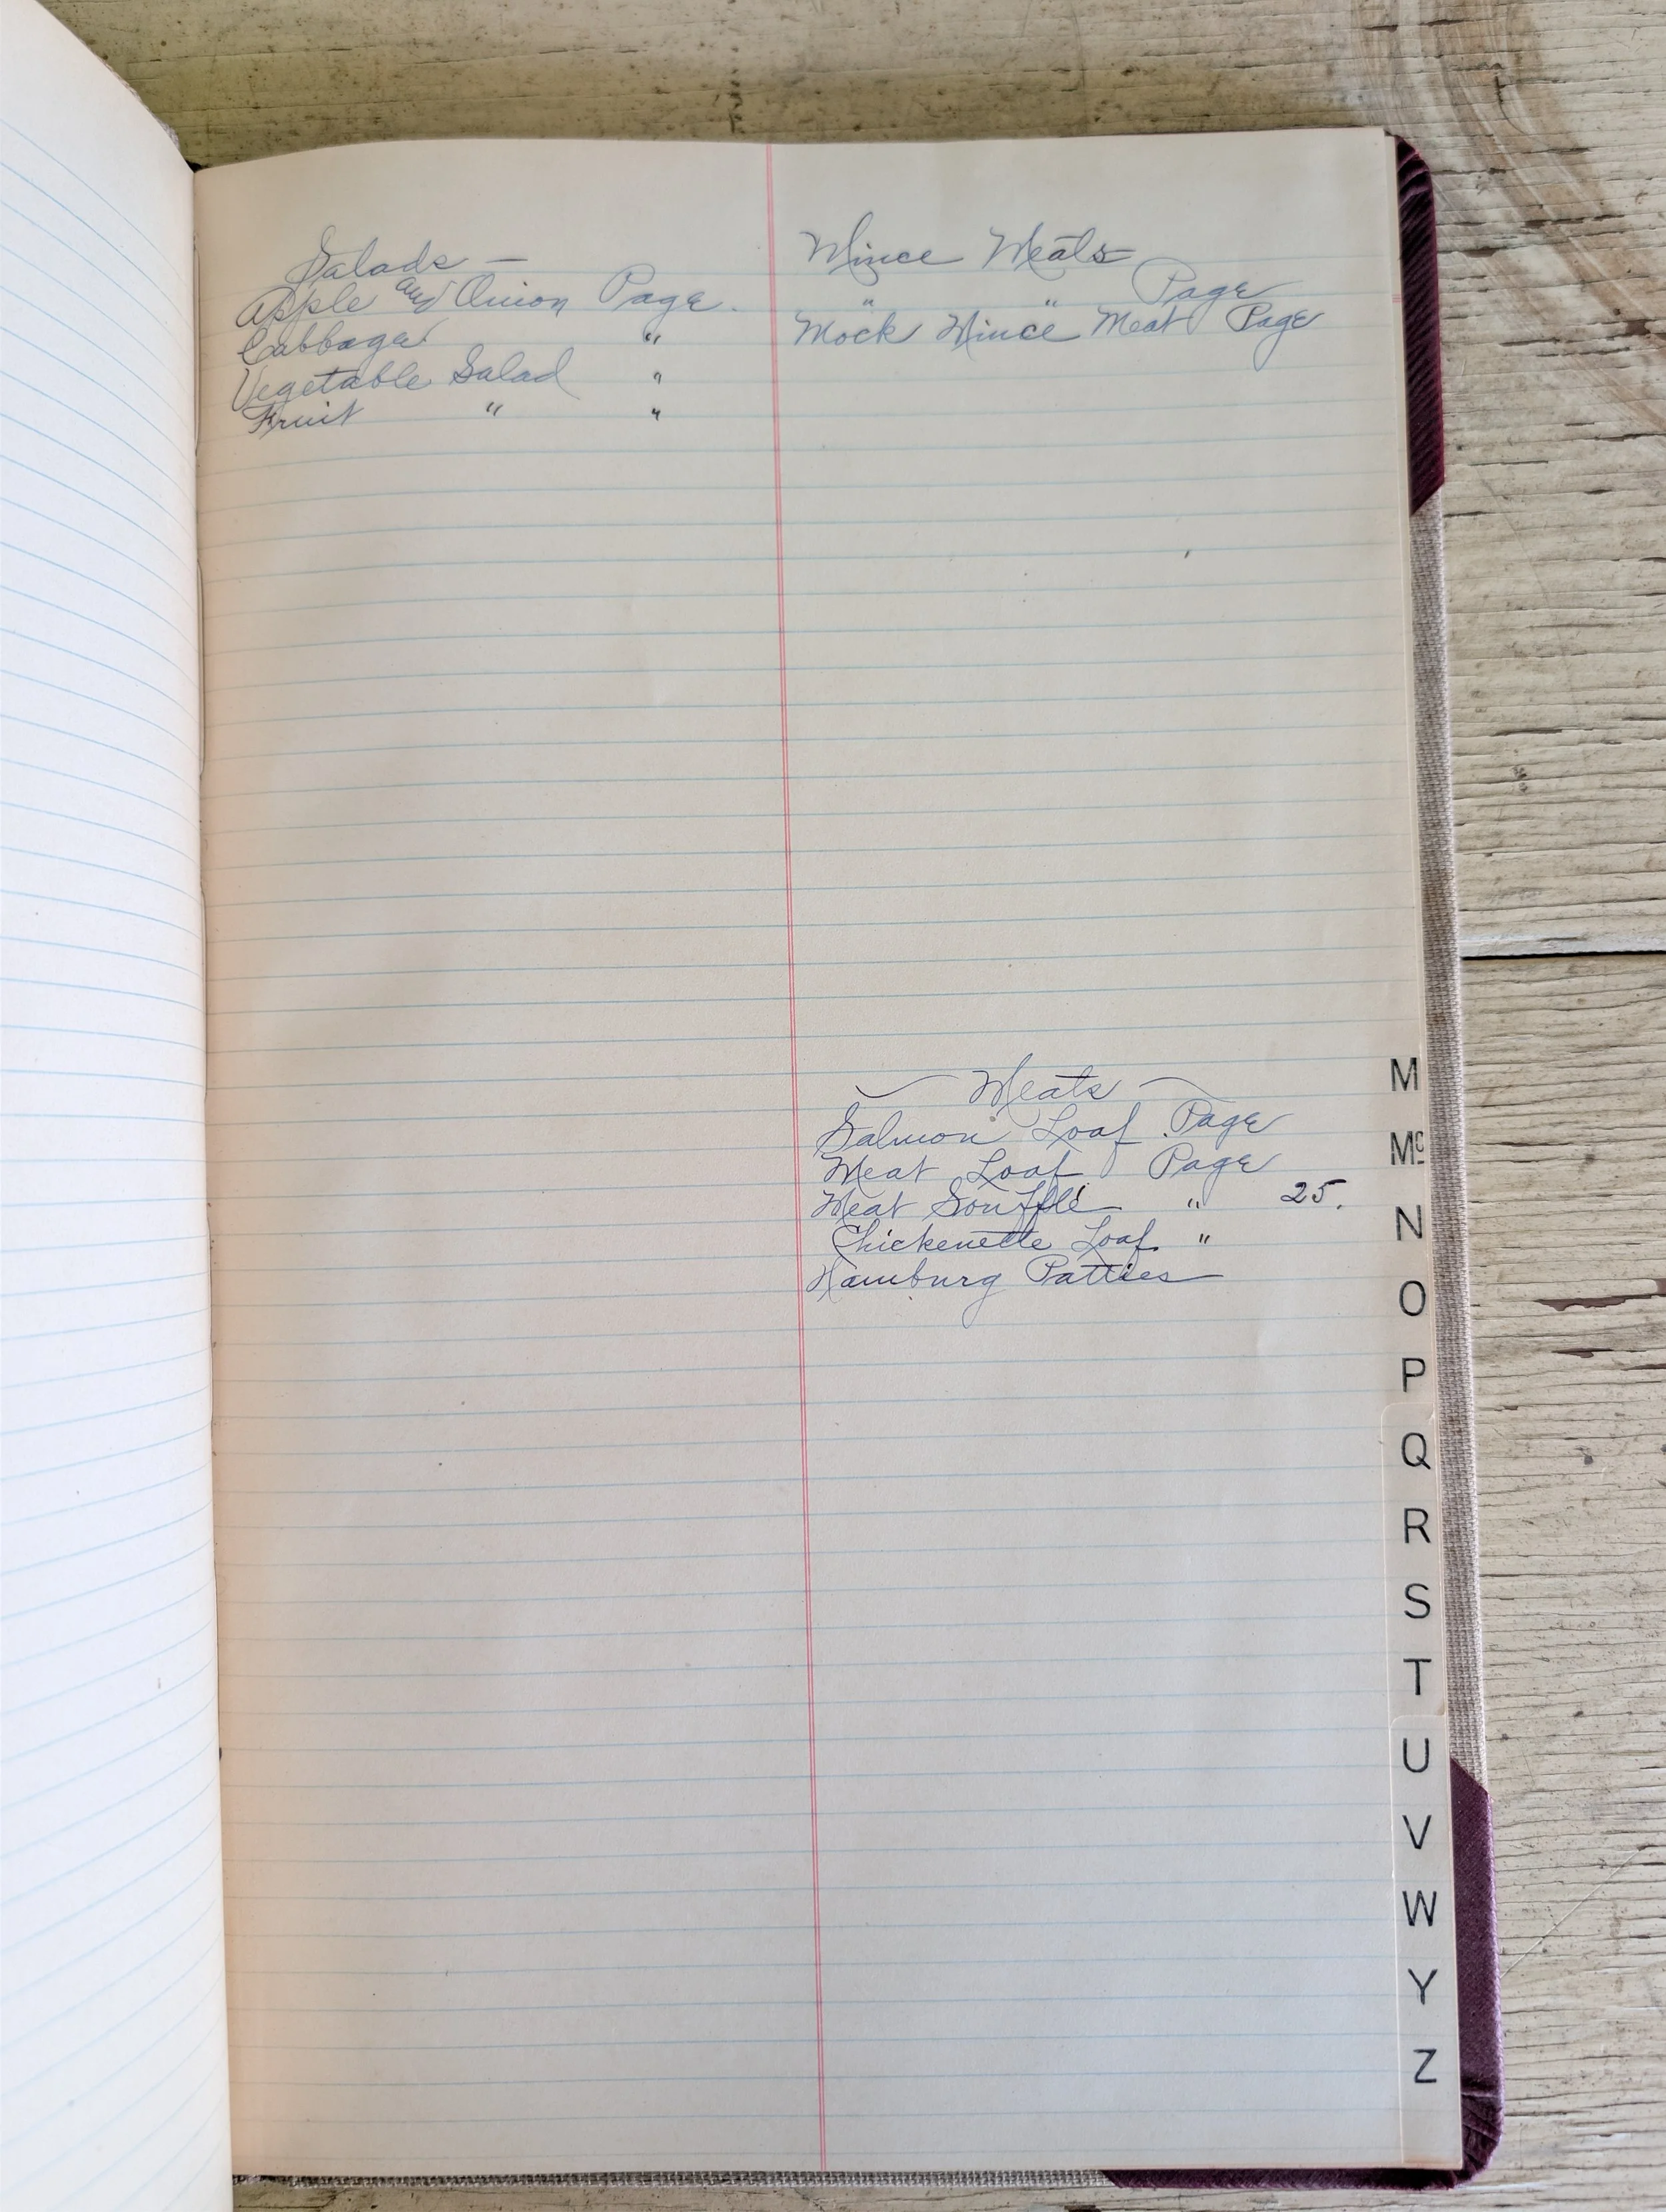 Salads —
Apple and Onion Page.
Cabbage "
Vegetable Salad "
Fruit " "
Mince Meats
" " Page
Mock Mince Meat Page
Meats
Salmon Loaf Page
Meat Loaf Page
Meat Soufflé " 25.
Chickenette Loaf "
Hamburg Patties
M
Mc
N
O
P
Q
R
S
T
U
V
W
Y
Z